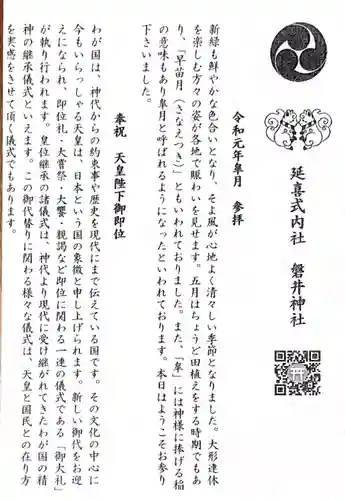 延喜式内社　磐井神社
令和元年皐月　参拝
新緑も鮮やかな色合いとなり、そよ風が心地よく清々しい季節となりました。大形連休
を楽しむ方々の姿が各地で賑わいを見せます。五月はちょうど田植えをする時期でもあ
り、「早苗月（さなえつき）」ともいわれておりました。また、「皐」には神様に捧げる稲
の意味もあり皐月と呼ばれるようになったといわれております。本日はようこそお参り
下さいました。
奉祝　天皇陛下御即位
わが国は、神代からの約束事や歴史を現代にまで伝えている国です。その文化の中心に
今もいらっしゃる天皇は、日本という国の象徴と申し上げられます。新しい御代をお迎
えになられ、即位礼・大嘗祭・大饗・親謁など即位に関わる一連の儀式である「御大礼」
が執り行われます。皇位継承の諸儀式は、神代より現代に受け継がれてきたわが国の精
神の継承儀式といえます。この御代替りに関わる様々な儀式は、天皇と国民との在り方
を実感をさせて頂く儀式でもあります。